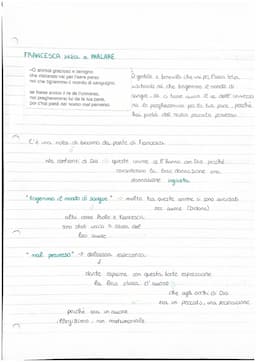 FRANCESCA inizia a PARLARE
«O animal grazioso e benigno
che visitando vai per l'aere perso
noi che tignemmo il mondo di sanguigno,
se fosse amico il re de l'universo,
noi pregheremmo lui de la tua pace,
poi c'hai pietà del nostro mal perverso.
O gentile e benevolo che vai per l'aria tetra
visitando noi che tingemmo il mondo di
sangue, se ci fosse amico il re dell'universo
noi lo pregheremmo per la tua pace, perché
hai pietà del nostro peccato perverso.
C'è una nota di biasimo da parte di Francesca
nei confronti di Dio → queste anime ce l'hanno con Dio perché
considerano la loro dannazione una
dannazione ingiusta
"tingemmo il mondo di sangue" → molte tra queste anime si sono suicidate
per amore (Didone)
altri come Paolo e Francesca
sono stati uccisi a causa del
loro amore
"mal perverso" → dolorosa esperienza
Dante esprime con questa forte espressione
la loro storia d'amore
che agli occhi di Dio
era un peccato, una perversione
perché era un amore
illegittimo, non matrimoniale.